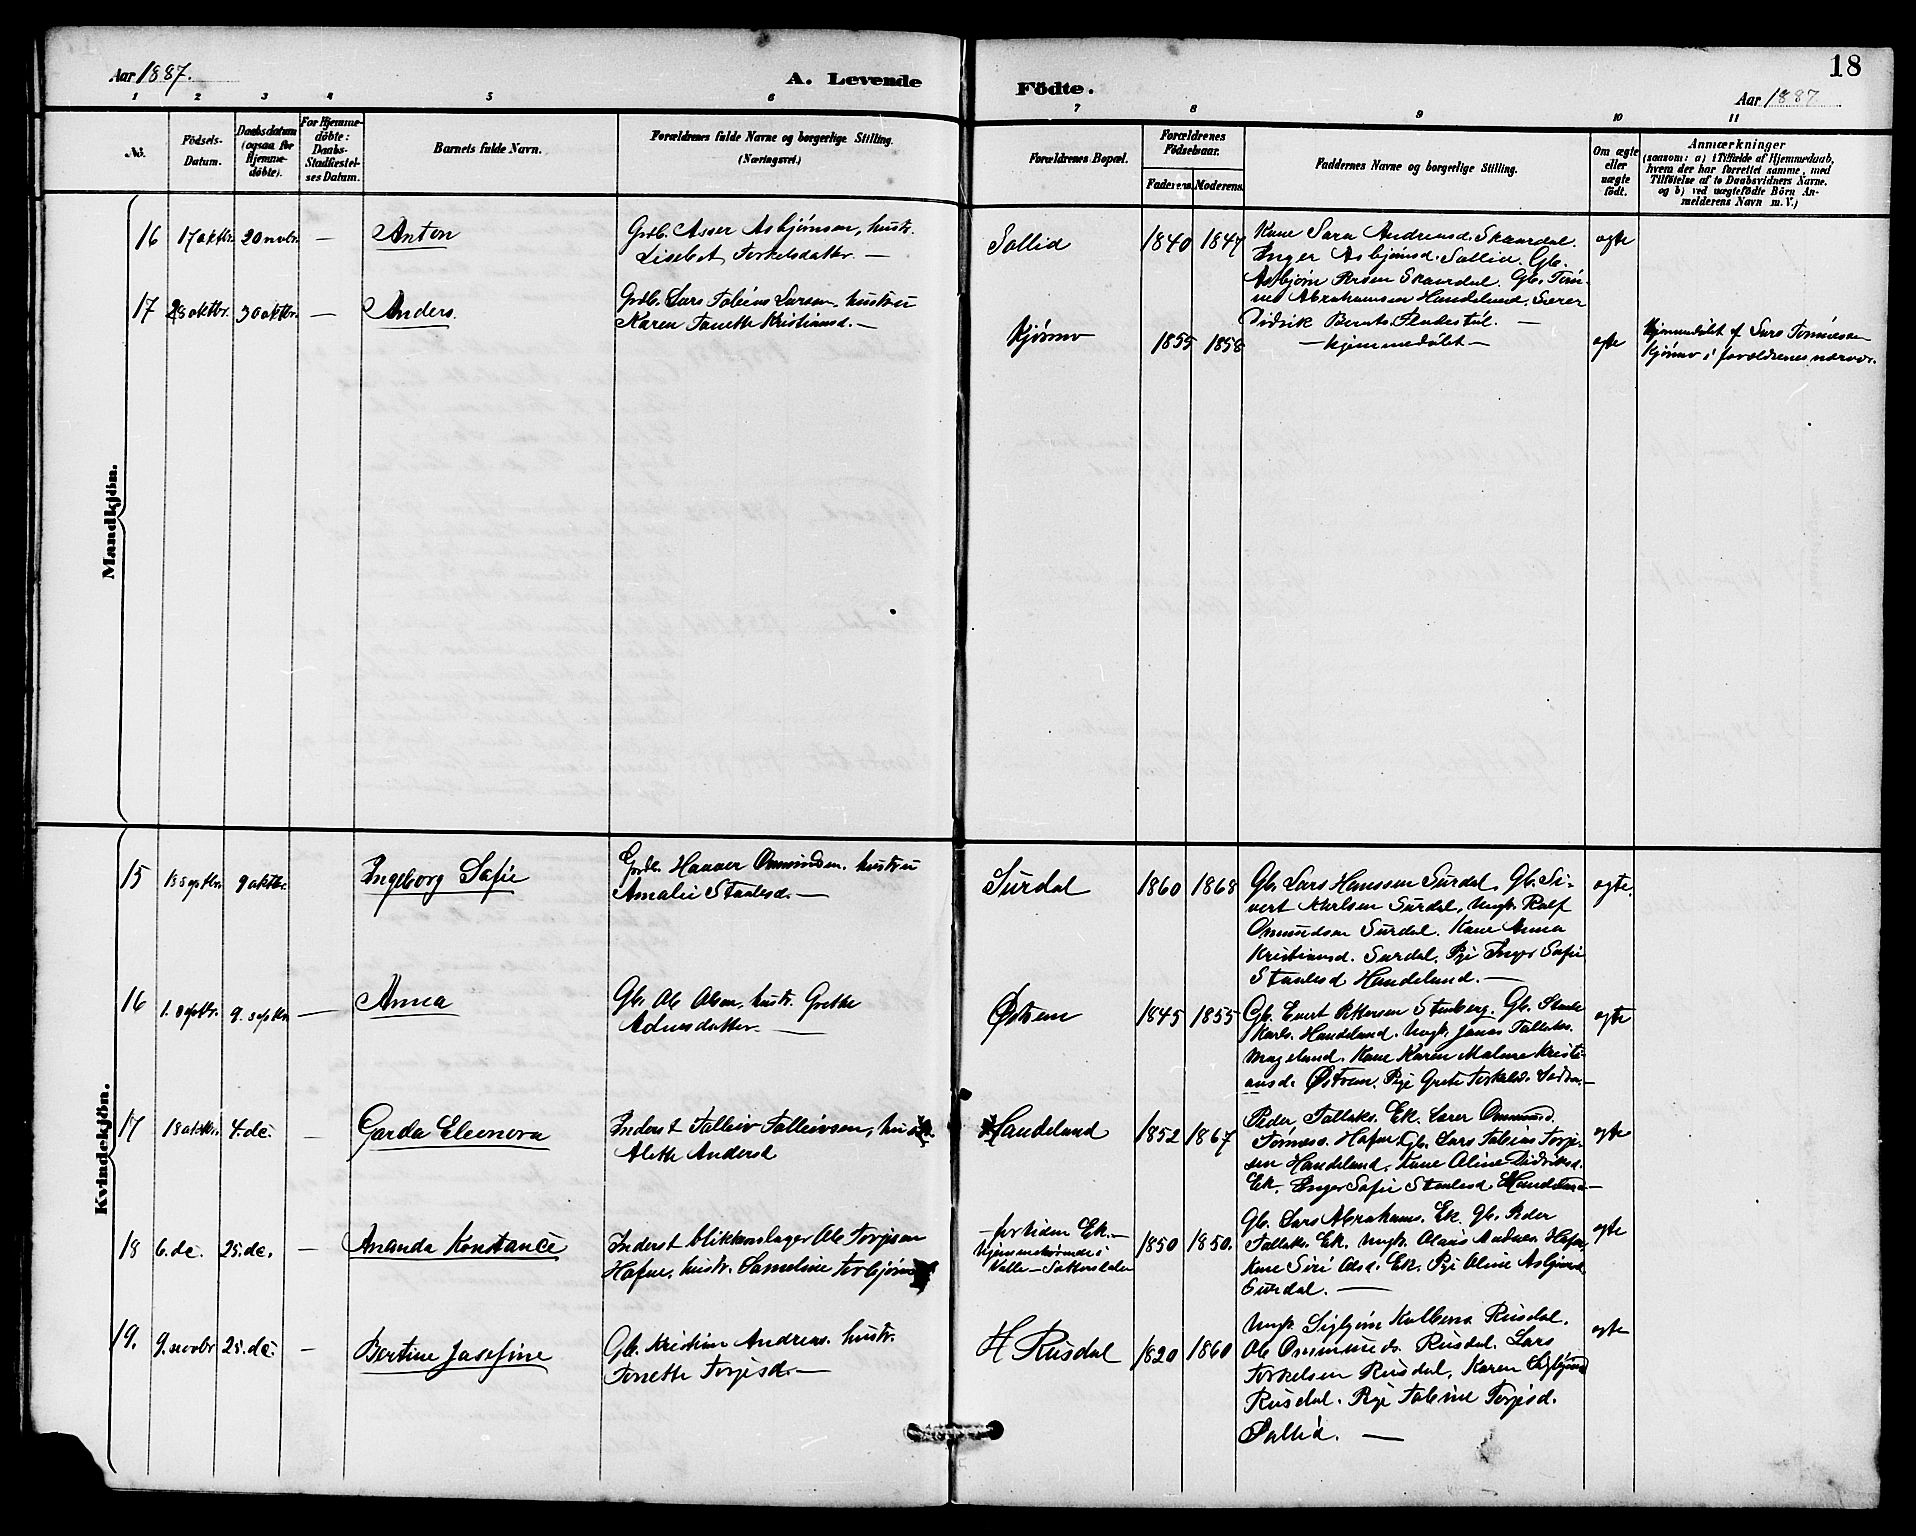 18
Aar 1887.
A. Levende
Födte.
Aar 1887
1 2 3 4 5 6 7 8 9 10 11
No.
Födsels-
Datum.
Daabsdatum
(ogsaa for
Hjemme-
döbte).
For Hjemme-
döbte:
Daabs-
Stadfæstel-
ses Datum.
Barnets fulde Navn.
Forældrenes fulde Navne og borgerlige Stilling.
(Næringsvei.)
Forældrenes Bopæl.
Forældrenes
Födselsaar.
Faderens. Moderens.
Faddernes Navne og borgerlige Stilling.
Om ægte
eller
uægte
födt.
Anmærkninger
(saasom: a) i Tilfælde af Hjemmedaab,
hvem der har forrettet samme, med
Tilföielse af to Daabsvidners Navne.
og b) ved uægtefödte Börn An-
melderens Navn m. V.)
Mandkjön.
16 17 oktbr. 20 novbr. — Anton
Grdb. Asser Asbjørnsen, hustr.
Lisebet Torkelsdatter. —
Sollid 1840 1847
Kone Sara Andreasd. Skaardal.
Inger Asbjørnsd. Sollid. Gb.
Asbjørn Skaardal. Gb. Tøn-
nes Abrahamsen Handeland,
Didrik —
ægte
17 oktbr. 30 oktbr. — Anders.
Grdb. Lars Tobias Larsen, hustru
Karen Tonette Kristiansd. —
Kjørmo 1855 1858
— hjemmedøbt —
ægte
Hjemmedøbt af Lars Tønnesen
Kjørmo i forældrenes nærvær.
Kvindekjön.
15 9 oktbr. Ingeborg Sofie
Grdb. Hanver Ommundsen. hustru
Amalie Staalesd. —
Surdal 1860 1868
Gb. Lars Hanssen Surdal, Gb. Si-
vert Surdal, Ungk. Rolf
Ommundsen Surdal. Kone Anna
Kristiansd. Surdal. Pige Inger Sofie
Staalesd Handeland. —
ægte.
16 1. septbr. 9. septbr. — Anna
Gb. Ole Olsen, hustr. Grethe
Adnesdatter. —
Østrem 1845 1855
Gb. Evert Stenberg. Gb. Staale
Karls. Handeland. Ungk. Jonas Tollaks.
Mageland. Kone Karen Malene Kristi-
ansd. Østrem. Pige Grete Torkelsd.
ægte
17 18 oktbr. 4. dc. — Garda Eleonora
Inderst Talleiv Talleivsen,
Alette Andersd
Handeland 1852 1867
Peder Tollaks. Ek. Ommund
Tønness. Hafne. Gb. Lars Tobias Torji-
sen Handeland. Kone Aline Didriksd.
Ek. Inger Sofie Staalesd. Handeland —
ægte
18 6. dc. 25. dc. — Ananda Konstance
Inderst blikkenslager Ole Torjisen
Hafne, hustr. Sameline
— fortiden Ek. —
Hjemmehørende i
Valle —
1850 1850.
Gb. Lars Abrahams. Ek. Gb. Peder
Tollaks. Ek. Ungk. Olaus Hafne,
Kone Siri Olsd. Ek. Pige Aline Asbjørnsd
Surdal. —
ægte
19. 9. novbr 25. dc. — Bertine Josefine
Gb. Kristian Andreas. hustr.
Tonette Torjisd. —
H Rusdal 1820 1860
Ungk. Sigbjørn Rusdal.
Ole Ommunds. Rusdal. Lars
Torkelsen Rusdal, Karen
Rusdal. Pige Tobine Torjisd.
Sollid. —
ægte